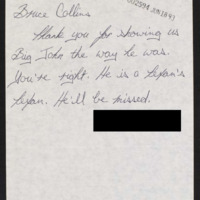 Bruce Collins
Thank you for showing us
Big John the way he was.
You're right. He is a Texan's
Texan. He'll be missed.